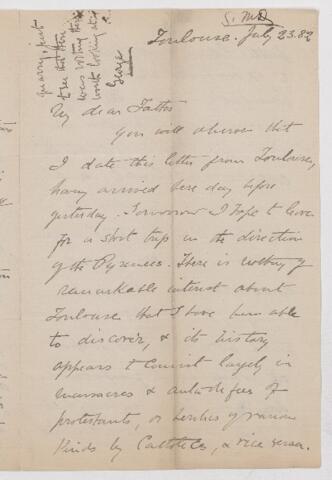 S. MD
Toulouse. July 23. 82
quarry, just
to see that there
was nothing there
worth looking at
George
My dear Father
You will observe that
I date this letter from Toulouse,
having arrived here day before
yesterday. Tomorrow I hope to leave
for a short trip in the direction
of the Pyrenees. There is nothing of
remarkable interest about
Toulouse that I have been able
to discover, & its history
appears to consist largely in
massacres & auto-da-fes of
protestants, or heretics of various
kinds by Catholics, & vice versa.